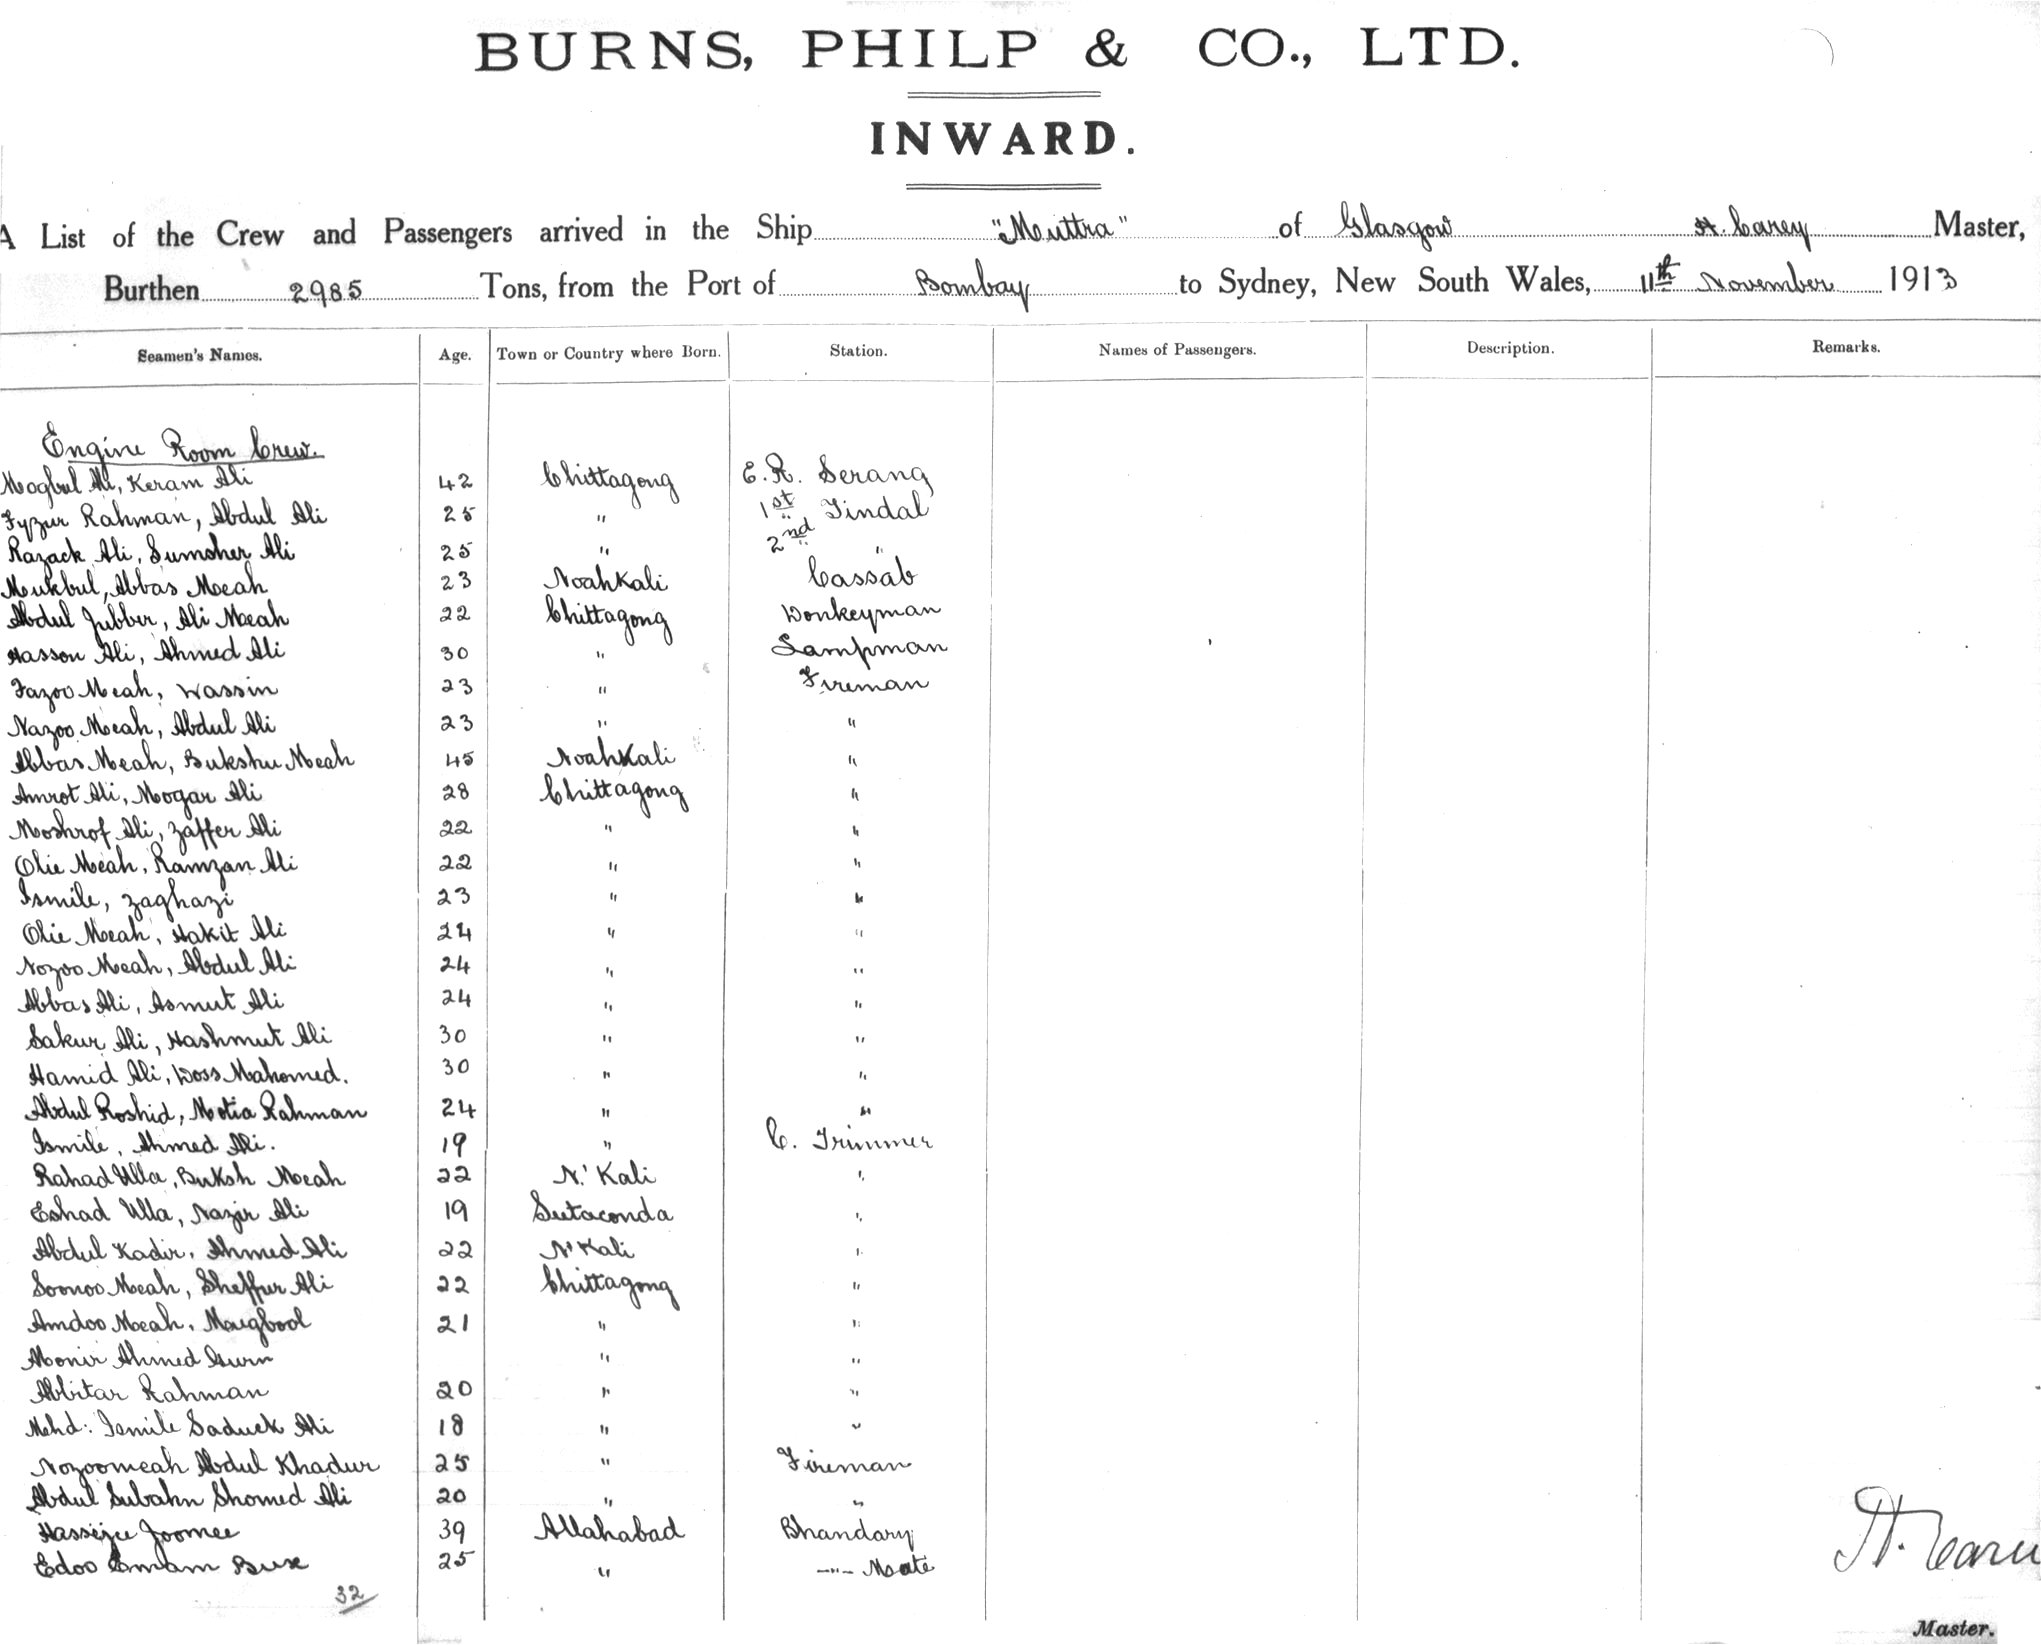 BURNS, PHILP & CO., LTD.
INWARD.
A List of the Crew and Passengers arrived in the Ship "Muttra" of Glasgow H. Carey Master,
Burthen 2985 Tons, from the Port of Bombay to Sydney, New South Wales, 11th November 1913
Seamen's Names. Age. Town or Country where Born. Station. Names of Passengers. Description. Remarks.
Engine Room Crew.
Mogbul Ali, Keram Ali 42 Chittagong E.R. Serang
Fyzur Rahman, Abdul Ali 25 " 1st Tindal
Razack Ali, Sumsher Ali 25 " 2nd "
Mukbul, Abbas Meah 23 NoahKali Cassab
Abdul Jubber, Ali Meah 22 Chittagong Donkeyman
Hasson Ali, Ahmed Ali 30 " Lampman
Fazoo Meah, Wassin 23 " Fireman
Nazoo Meah, Abdul Ali 23 " "
Abbas Meah, Bukshu Meah 45 NoahKali "
Amrot Ali, Mogar Ali 28 Chittagong "
Moshrof Ali, Zaffer Ali 22 " "
Olie Meah, Ramzan Ali 22 " "
Ismile, Zaghazi 23 " "
Olie Meah, Hakit Ali 24 " "
Nozoo Meah, Abdul Ali 24 " "
Abbas Ali, Asmut Ali 24 " "
Sakur Ali, Hashmut Ali 30 " "
Hamid Ali, Doss Mahomed. 30 " "
Abdul Roshid, Motia Rahman 24 " "
Ismile, Ahmed Ali. 19 " C. Trimmer
Rahad Ulla, Buksh Meah 22 N. Kali "
Eshad Ulla, Nazir Ali 19 Sutaconda "
Abdul Kadir, Ahmed Ali 22 N'Kali "
Soonoo Meah, Sheffur Ali 22 Chittagong "
Amdoo Meah, Maugbool 21 " "
Monir Ahmed " "
Abbitar Rahman 20 " "
Mehd: Ismile Saduck Ali 18 " "
Nozoomeah Abdul Khadur 25 " Fireman
Abdul Subahn Shomed Ali 20 " "
Joomee 39 Allahabad Bhandary
Edoo Emam Bux 25 " -"- Mate
32
H. Carey
Master.